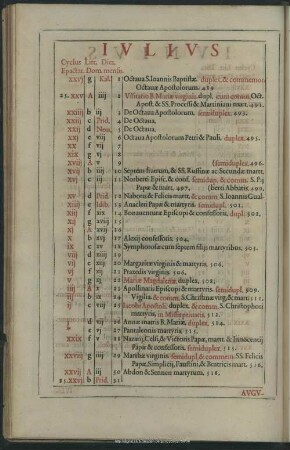 IVLIVS
Cyclus Lit. Dies
Epactu. Dom. mensis.
xxvj g Kal. 1 Octaua S. Ioannis Baptistæ. duplex, & commemo.
Octauæ Apostolorum. 489
25. xxv A iiij 2 Visitatio B. Mariæ virginis dupl. cum comm. Oct.
Apost. & SS. Processi & Martiniani mart. 491.
xxiiij b iij 3 De Octaua Apostolorum, semiduplex. 493.
xxiij c Prid. 4 De Octaua.
xxij d Non. 5 De Octaua.
xxj e viij 6 Octaua Apostolorum Petri & Pauli. duplex. 495.
xx f vij 7
xix g vj 8
xviij A v 9 (semiduplex. 496.
xvij b iiij 10 Septem fratrum, & SS. Ruffinæ ac Secundæ mart.
xvj c iij 11 Pij
Papæ & mart. 497.
xv d Prid. 12 Naboris & Felicis mart. & comm. S. Ioannis Gual-
xiiij e Idib. 13 Anacleti Papæ & martyris. semidupl. 502.
xiij f xix 14 Bonauenturæ Episcopi & confessoris. dupl. 502.
xij g xviij 15
xj A xvij 16
x b xvj 17 Alexij confessoris. 504.
ix c xv 18 Symphorosæ cum septem filijs martyribus. 505.
viij d xiiij 19
vij e xiij 20 Margaritæ virginis & martyris. 506.
vj f xij 21 Praxedis virginis. 506.
v g xj 22 Mariæ Magdalenæ, duplex. 506.
iiij A x 23 Apollinaris Episcopi & martyris. semidupl. 509.
iij b ix 24 Vigilia. & comm. S. Christinæ virg. & mart. 511.
ij c viij 25 Iacobi Apostoli. duplex, & comm. S. Christophori
martyris, in Missis priuatis 512.
j d vij 26 Annæ matris B. Mariæ. duplex. 514.
* e vj 27 Pantaleonis martyris. 515.
xxix f v 28 Nazarij, Celsi, & Victoris Papæ, mart. & Innocentij
Papæ & confessoris. semiduplex. 515.
xxviij g iiij 29 Marthæ virginis. semidupl. & commem. SS. Felicis
Papæ, Simplicij, Faustini, & Beatricis mart. 516.
xxvij A iij 30 Abdon & Sennen martyrum. 518.
25. xxvj b Prid. 31
AVGV-